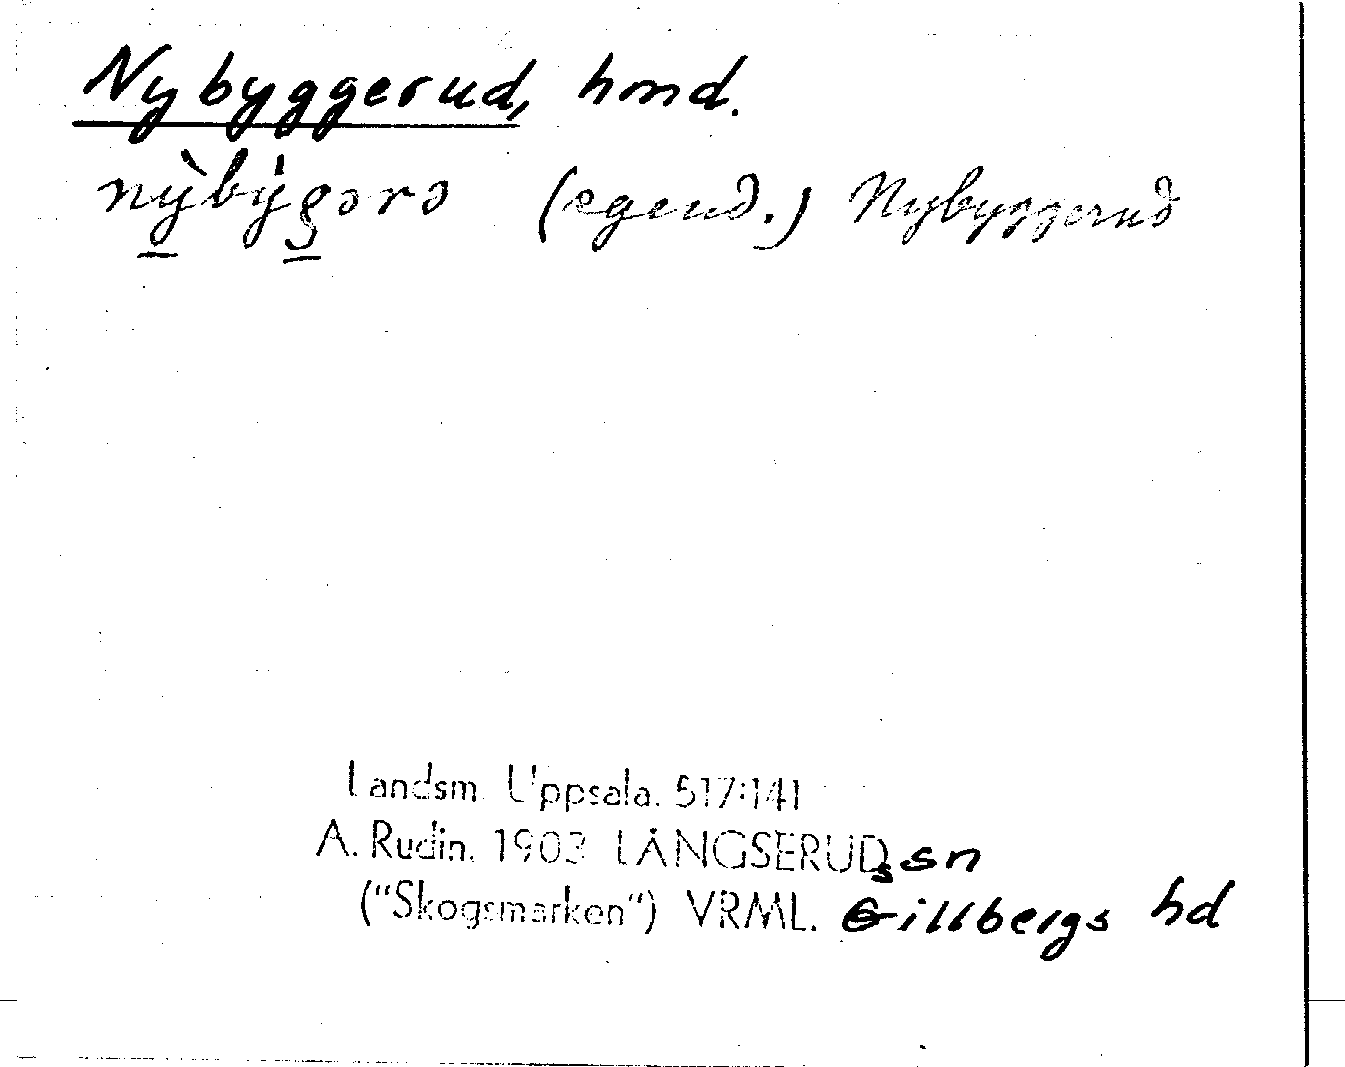 Nybyggerud, hmd.
nỳbýgərə (egend.) Nybyggerud
Landsm. Uppsala. 517:141
A. Rudin. 1903 LÅNGSERUDs sn
("Skogsmarken") VRML. Gillbergs hd